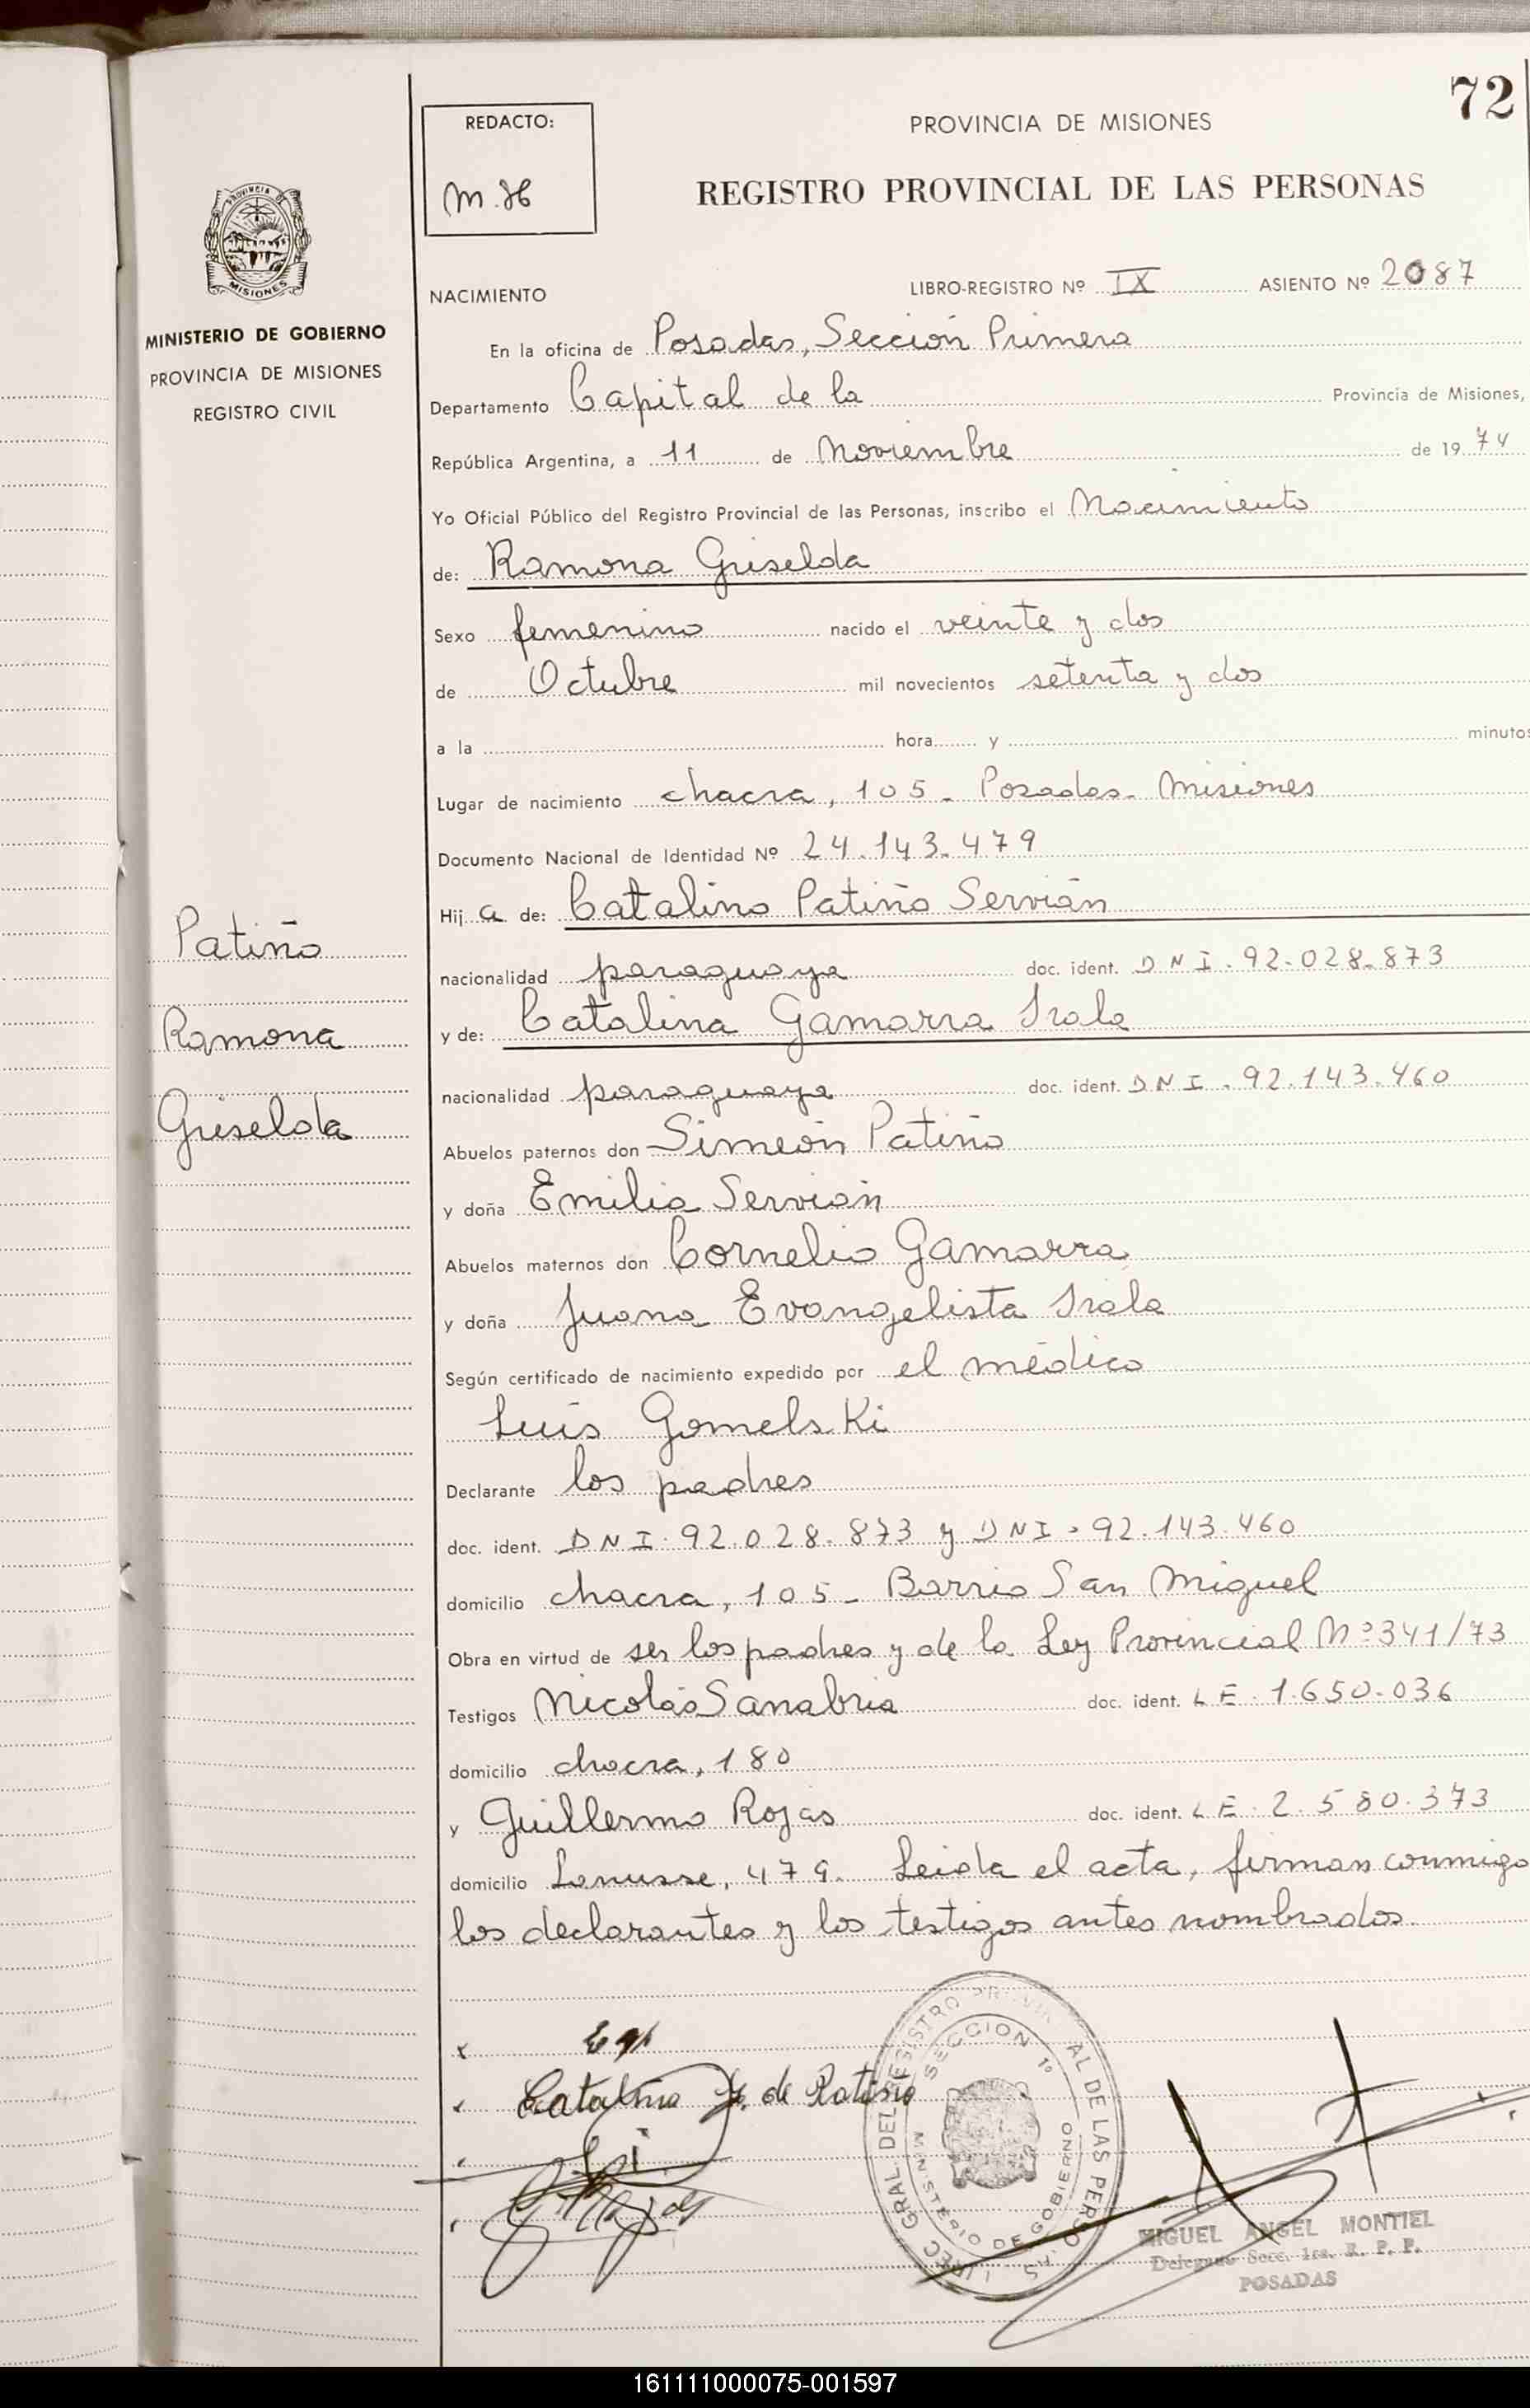 72
REDACTO:
PROVINCIA DE MISIONES
REGISTRO PROVINCIAL DE LAS PERSONAS
PROVINCIA
MISIONES
MINISTERIO DE GOBIERNO
PROVINCIA DE MISIONES
REGISTRO CIVIL
NACIMIENTO
LIBRO-REGISTRO Nº IX ASIENTO Nº 2087
En la oficina de Posadas, Sección Primera
Departamento Capital de la Provincia de Misiones,
República Argentina, a 11 de Noviembre de 1974
Yo Oficial Público del Registro Provincial de las Personas, inscribo el Nacimiento
de: Ramona Griselda
Sexo femenino nacido el veinte y dos
de Octubre mil novecientos setenta y dos
a la hora y minutos
Lugar de nacimiento chacra, 105 - Posadas - Misiones
Documento Nacional de Identidad Nº 24.143.479
Hija de: Catalino Patiño Servián
nacionalidad paraguaya doc. ident. DNI. 92.028.873
y de: Catalina Gamarra Irala
nacionalidad paraguaya doc. ident. DNI. 92.143.460
Abuelos paternos don Simeón Patiño
y doña Emilia Servián
Abuelos maternos don Cornelio Gamarra
y doña Juana Evangelista Irala
Según certificado de nacimiento expedido por el médico
Luis Gomelski
Declarante los padres
doc. ident. DNI. 92.028.873 y DNI. 92.143.460
domicilio chacra, 105 - Barrio San Miguel
Obra en virtud de ser los padres y de la Ley Provincial Nº 341/73
Testigos Nicolás Sanabria doc. ident. LE. 1.650.036
domicilio chacra, 180
y Guillermo Rojas doc. ident. LE. 2.580.373
domicilio Lanusse, 479. Leida el acta, firman conmigo
los declarantes y los testigos antes nombrados.
Patiño
Ramona
Griselda
Catalina G. de Patiño
SECCION 1º
MINISTERIO DE GOBIERNO
MIGUEL ANGEL MONTIEL
Delegado Secc. 1ra. R. P. P.
POSADAS
161111000075-001597